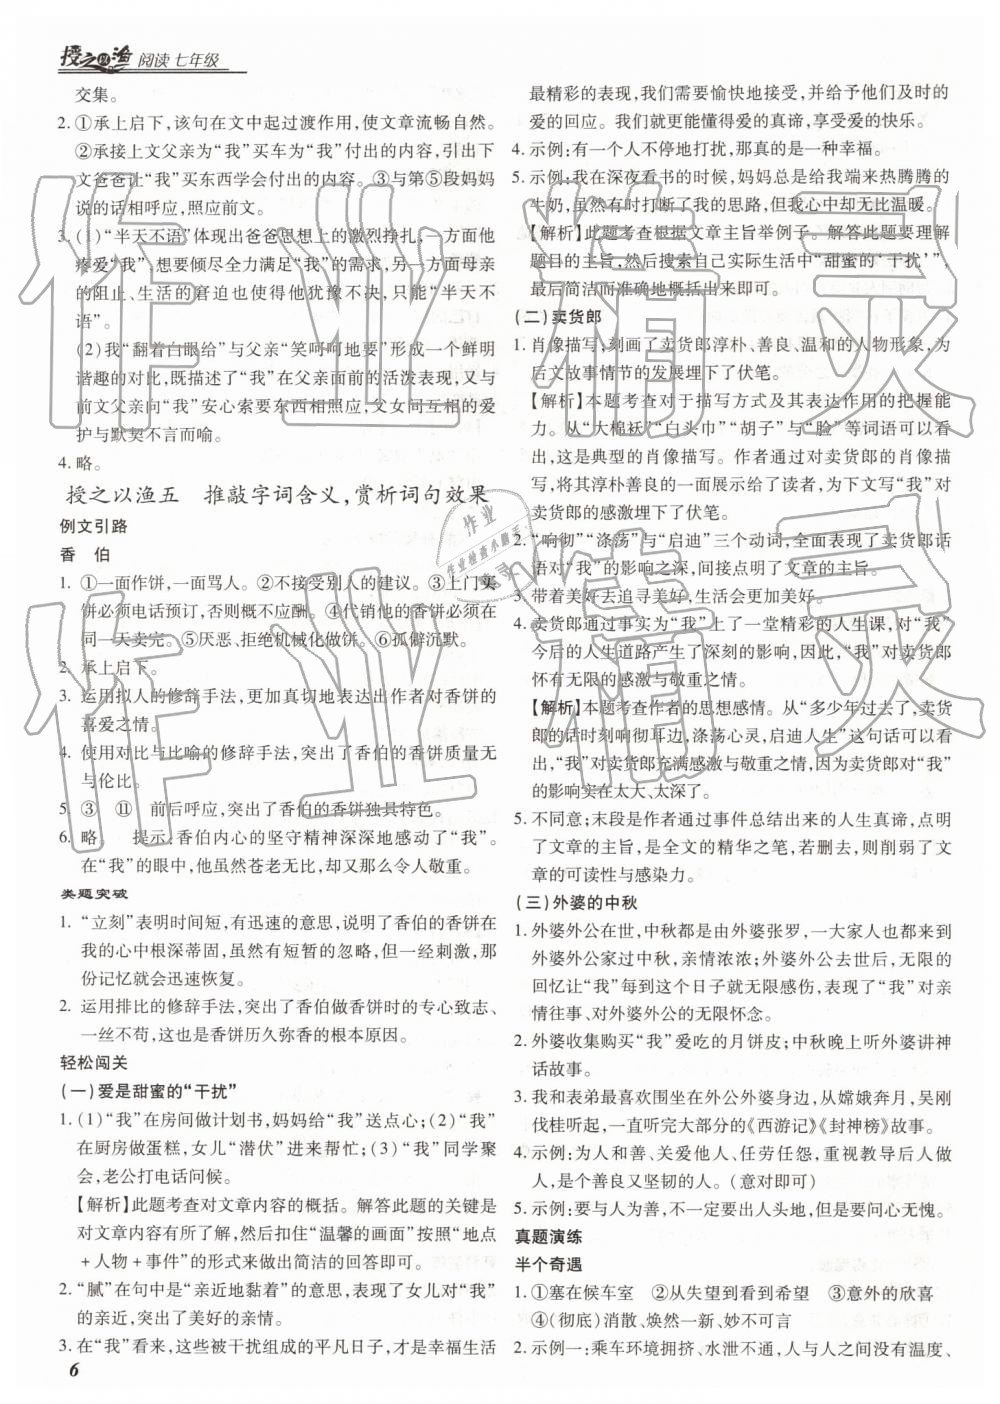 授之以渔 阅读 七年级
交集。
2. ①承上启下,该句在文中起过渡作用,使文章流畅自然。
②承接上文父亲为“我”买车为“我”付出的内容,引出下
文爸爸让“我”买东西学会付出的内容。③与第⑤段妈妈
说的话相呼应,照应前文。
3. (1)“半天不语”体现出爸爸思想上的激烈挣扎,一方面他
疼爱“我”,想要倾尽全力满足“我”的需求,另一方面母亲
的阻止、生活的窘迫也使得他犹豫不决,只能“半天不
语”。
(2)我“翻着白眼给”与父亲“笑呵呵地要”形成一个鲜明
谐趣的对比,既描述了“我”在父亲面前的活泼表现,又与
前文父亲向“我”安心索要东西相照应,父女间互相的爱
护与默契不言而喻。
4. 略。
授之以渔五 推敲字词含义,赏析词句效果
例文引路
香 伯
1. ①一面作饼,一面骂人。②不接受别人的建议。③上门买
饼必须电话预订,否则概不应酬。④代销他的香饼必须在
同一天卖完。⑤厌恶、拒绝机械化做饼。⑥孤僻沉默。
2. 承上启下。
3. 运用拟人的修辞手法,更加真切地表达出作者对香饼的
喜爱之情。
4. 使用对比与比喻的修辞手法,突出了香伯的香饼质量无
与伦比。
5. ③ ⑪ 前后呼应,突出了香伯的香饼独具特色。
6. 略 提示:香伯内心的坚守精神深深地感动了“我”。
在“我”的眼中,他虽然苍老无比,却又那么令人敬重。
类题突破
1. “立刻”表明时间短,有迅速的意思,说明了香伯的香饼在
我的心中根深蒂固,虽然有短暂的忽略,但一经刺激,那
份记忆就会迅速恢复。
2. 运用排比的修辞手法,突出了香伯做香饼时的专心致志、
一丝不苟,这也是香饼历久弥香的根本原因。
轻松闯关
(一)爱是甜蜜的“干扰”
1. (1)“我”在房间做计划书,妈妈给“我”送点心;(2)“我”
在厨房做蛋糕,女儿“潜伏”进来帮忙;(3)“我”同学聚
会,老公打电话问候。
【解析】此题考查对文章内容的概括。解答此题的关键是
对文章内容有所了解,然后扣住“温馨的画面”按照“地点
+人物+事件”的形式来做出简洁的回答即可。
2. “腻”在句中是“亲近地黏着”的意思,表现了女儿对“我”
的亲近,突出了美好的亲情。
3. 在“我”看来,这些被干扰组成的平凡日子,才是幸福生活
6
最精彩的表现,我们需要愉快地接受,并给他们及时的
爱的回应。我们就更能懂得爱的真谛,享受爱的快乐。
4. 示例:有一个人不停地打扰,那真的是一种幸福。
5. 示例:我在深夜看书的时候,妈妈总是给我端来热腾腾的
牛奶,虽然有时打断了我的思路,但我心中却无比温暖。
【解析】此题考查根据文章主旨举例子。解答此题要理解
题目的主旨,然后搜索自己实际生活中“甜蜜的‘干扰’”,
最后简洁而准确地概括出来即可。
(二)卖货郎
1. 肖像描写,刻画了卖货郎淳朴、善良、温和的人物形象,为
后文故事情节的发展埋下了伏笔。
【解析】本题考查对于描写方式及其表达作用的把握能
力。从“大棉袄”“白头巾”“胡子”与“脸”等词语可以看
出,这是典型的肖像描写。作者通过对卖货郎的肖像描
写,将其淳朴善良的一面展示给了读者,为下文“我”对
卖货郎的感激埋下了伏笔。
2. “响彻”“涤荡”与“启迪”三个动词,全面表现了卖货郎话
语对“我”的影响之深,间接点明了文章的主旨。
3. 带着美好去追寻美好,生命会更加美好。
4. 卖货郎通过事实为“我”上了一堂精彩的人生课,对“我”
今后的人生道路产生了深刻的影响,因此,“我”对卖货郎
怀有无限的感激与敬重之情。
【解析】本题考查作者的思想感情。从“多少年过去了,卖货
郎的话时刻响彻耳边、涤荡心灵,启迪人生”这句话可以看
出,“我”对卖货郎充满感激与敬重之情,因为卖货郎对“我”
的影响实在太大、太深了。
5. 不同意;末段是作者通过事件总结出来的人生真谛,点明
了文章的主旨,是全文的精华之笔,若删去,则削弱了文
章的可读性与感染力。
(三)外婆的中秋
1. 外婆外公在世,中秋都是由外婆张罗,一大家人也都来到
外婆外公家过中秋,亲情浓浓;外婆外公去世后,无限的
回忆让“我”每到这个日子就无限感伤,表现了“我”对亲
情往事、对外婆外公的无限怀念。
2. 外婆收集购买“我”爱吃的月饼皮;中秋晚上听外婆讲神
话故事。
3. 我和表弟最喜欢围坐在外公外婆身边,从嫦娥奔月,吴刚
伐桂开始,一直听完大部分的《西游记》《封神榜》故事。
4. 示例:为人和善、关爱他人、任劳任怨,重视教导后人做
人,是个善良又坚韧的人。(意对即可)
5. 示例:要与人为善,不一定要出人头地,但是要问心无愧。
真题演练
半个奇遇
1. ①塞在候车室 ②从失望到看到希望 ③意外的欣喜
④(彻底)消散、焕然一新、妙不可言
2. 示例一:乘车环境拥挤、水泄不通,人与人之间没有温度、
作业精灵
作业精灵
作业
作业检查小助手